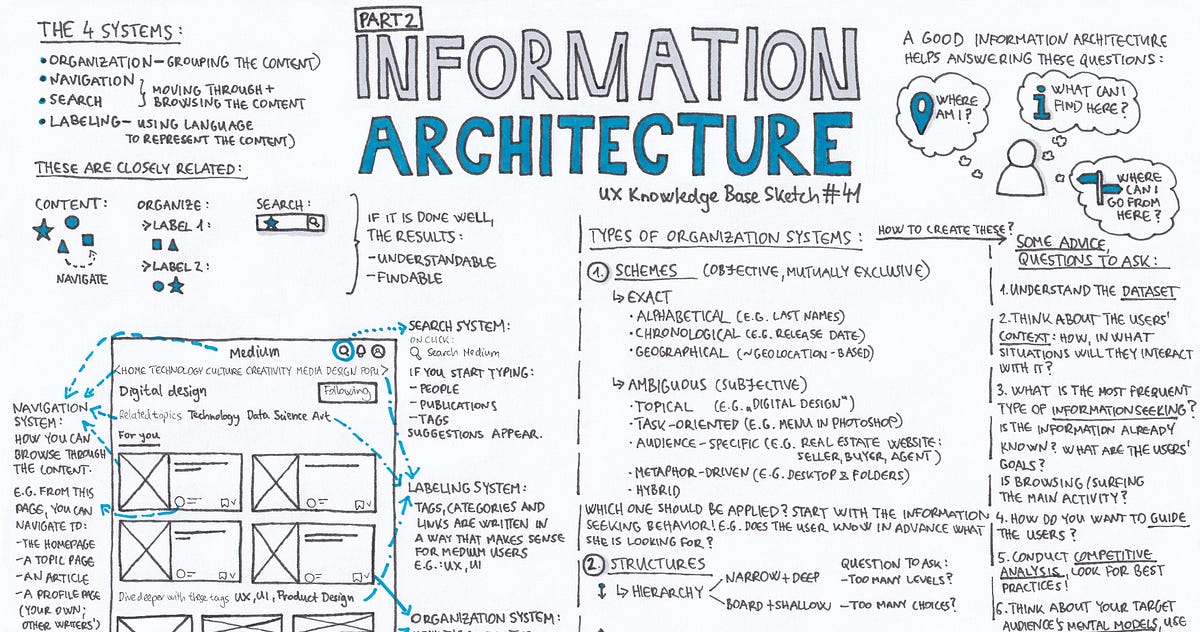 THE 4 SYSTEMS:
• ORGANIZATION – GROUPING THE CONTENT)
• NAVIGATION
• SEARCH
MOVING THROUGH +
BROWSING THE CONTENT
• LABELING – USING LANGUAGE
TO REPRESENT THE CONTENT)
THESE ARE CLOSELY RELATED:
CONTENT:
NAVIGATE
ORGANIZE:
>LABEL 1:
>LABEL 2:
SEARCH:
IF IT IS DONE WELL,
THE RESULTS:
-UNDERSTANDABLE
-FINDABLE
PART 2
INFORMATION
ARCHITECTURE
UX Knowledge Base Sketch #41
A GOOD INFORMATION ARCHITECTURE
HELPS ANSWERING THESE QUESTIONS:
WHERE
AM I?
i
WHAT CAN I
FIND HERE?
WHERE
CAN I
GO FROM
HERE?
NAVIGATION
SYSTEM:
HOW YOU CAN
BROWSE THROUGH
THE CONTENT.
E.G. FROM THIS
PAGE, YOU CAN
NAVIGATE TO:
-THE HOMEPAGE
-A TOPIC PAGE
-AN ARTICLE
-A PROFILE PAGE
(YOUR OWN;
OTHER WRITERS')
Medium
<HOME TECHNOLOGY CULTURE CREATIVITY MEDIA DESIGN POPU>
Digital design
Following
Related topics Technology Data Science Art
For you
Dive deeper with these tags UX, UI, Product Design
SEARCH SYSTEM:
ON CLICK:
Search Medium
IF YOU START TYPING:
- PEOPLE
- PUBLICATIONS
- TAGS
SUGGESTIONS APPEAR.
LABELING SYSTEM:
TAGS, CATEGORIES AND
LINKS ARE WRITTEN IN
A WAY THAT MAKES SENSE
FOR MEDIUM USERS
E.G.: UX, UI
ORGANIZATION SYSTEM:
TYPES OF ORGANIZATION SYSTEMS:
HOW TO CREATE THESE?
1. SCHEMES (OBJECTIVE, MUTUALLY EXCLUSIVE)
↳ EXACT
• ALPHABETICAL (E.G. LAST NAMES)
• CHRONOLOGICAL (E.G. RELEASE DATE)
• GEOGRAPHICAL (~GEOLOCATION-BASED)
↳ AMBIGUOUS (SUBJECTIVE)
• TOPICAL (E.G. „DIGITAL DESIGN")
• TASK-ORIENTED (E.G. MENU IN PHOTOSHOP)
• AUDIENCE-SPECIFIC (E.G. REAL ESTATE WEBSITE:
SELLER, BUYER, AGENT)
• METAPHOR-DRIVEN (E.G. DESKTOP & FOLDERS)
• HYBRID
WHICH ONE SHOULD BE APPLIED? START WITH THE INFORMATION
SEEKING BEHAVIOR! E.G. DOES THE USER KNOW IN ADVANCE WHAT
SHE IS LOOKING FOR?
2. STRUCTURES
↳ HIERARCHY
NARROW + DEEP
BOARD + SHALLOW
QUESTION TO ASK:
-TOO MANY LEVELS?
-TOO MANY CHOICES?
SOME ADVICE,
QUESTIONS TO ASK:
1. UNDERSTAND THE DATASET
2. THINK ABOUT THE USERS'
CONTEXT: HOW, IN WHAT
SITUATIONS WILL THEY INTERACT
WITH IT?
3. WHAT IS THE MOST FREQUENT
TYPE OF INFORMATION SEEKING?
IS THE INFORMATION ALREADY
KNOWN? WHAT ARE THE USERS'
GOALS?
IS BROWSING/SURFING
THE MAIN ACTIVITY?
4. HOW DO YOU WANT TO GUIDE
THE USERS?
5. CONDUCT COMPETITIVE
ANALYSIS, LOOK FOR BEST
PRACTICES!
6. THINK ABOUT YOUR TARGET
AUDIENCE'S MENTAL MODELS, USE